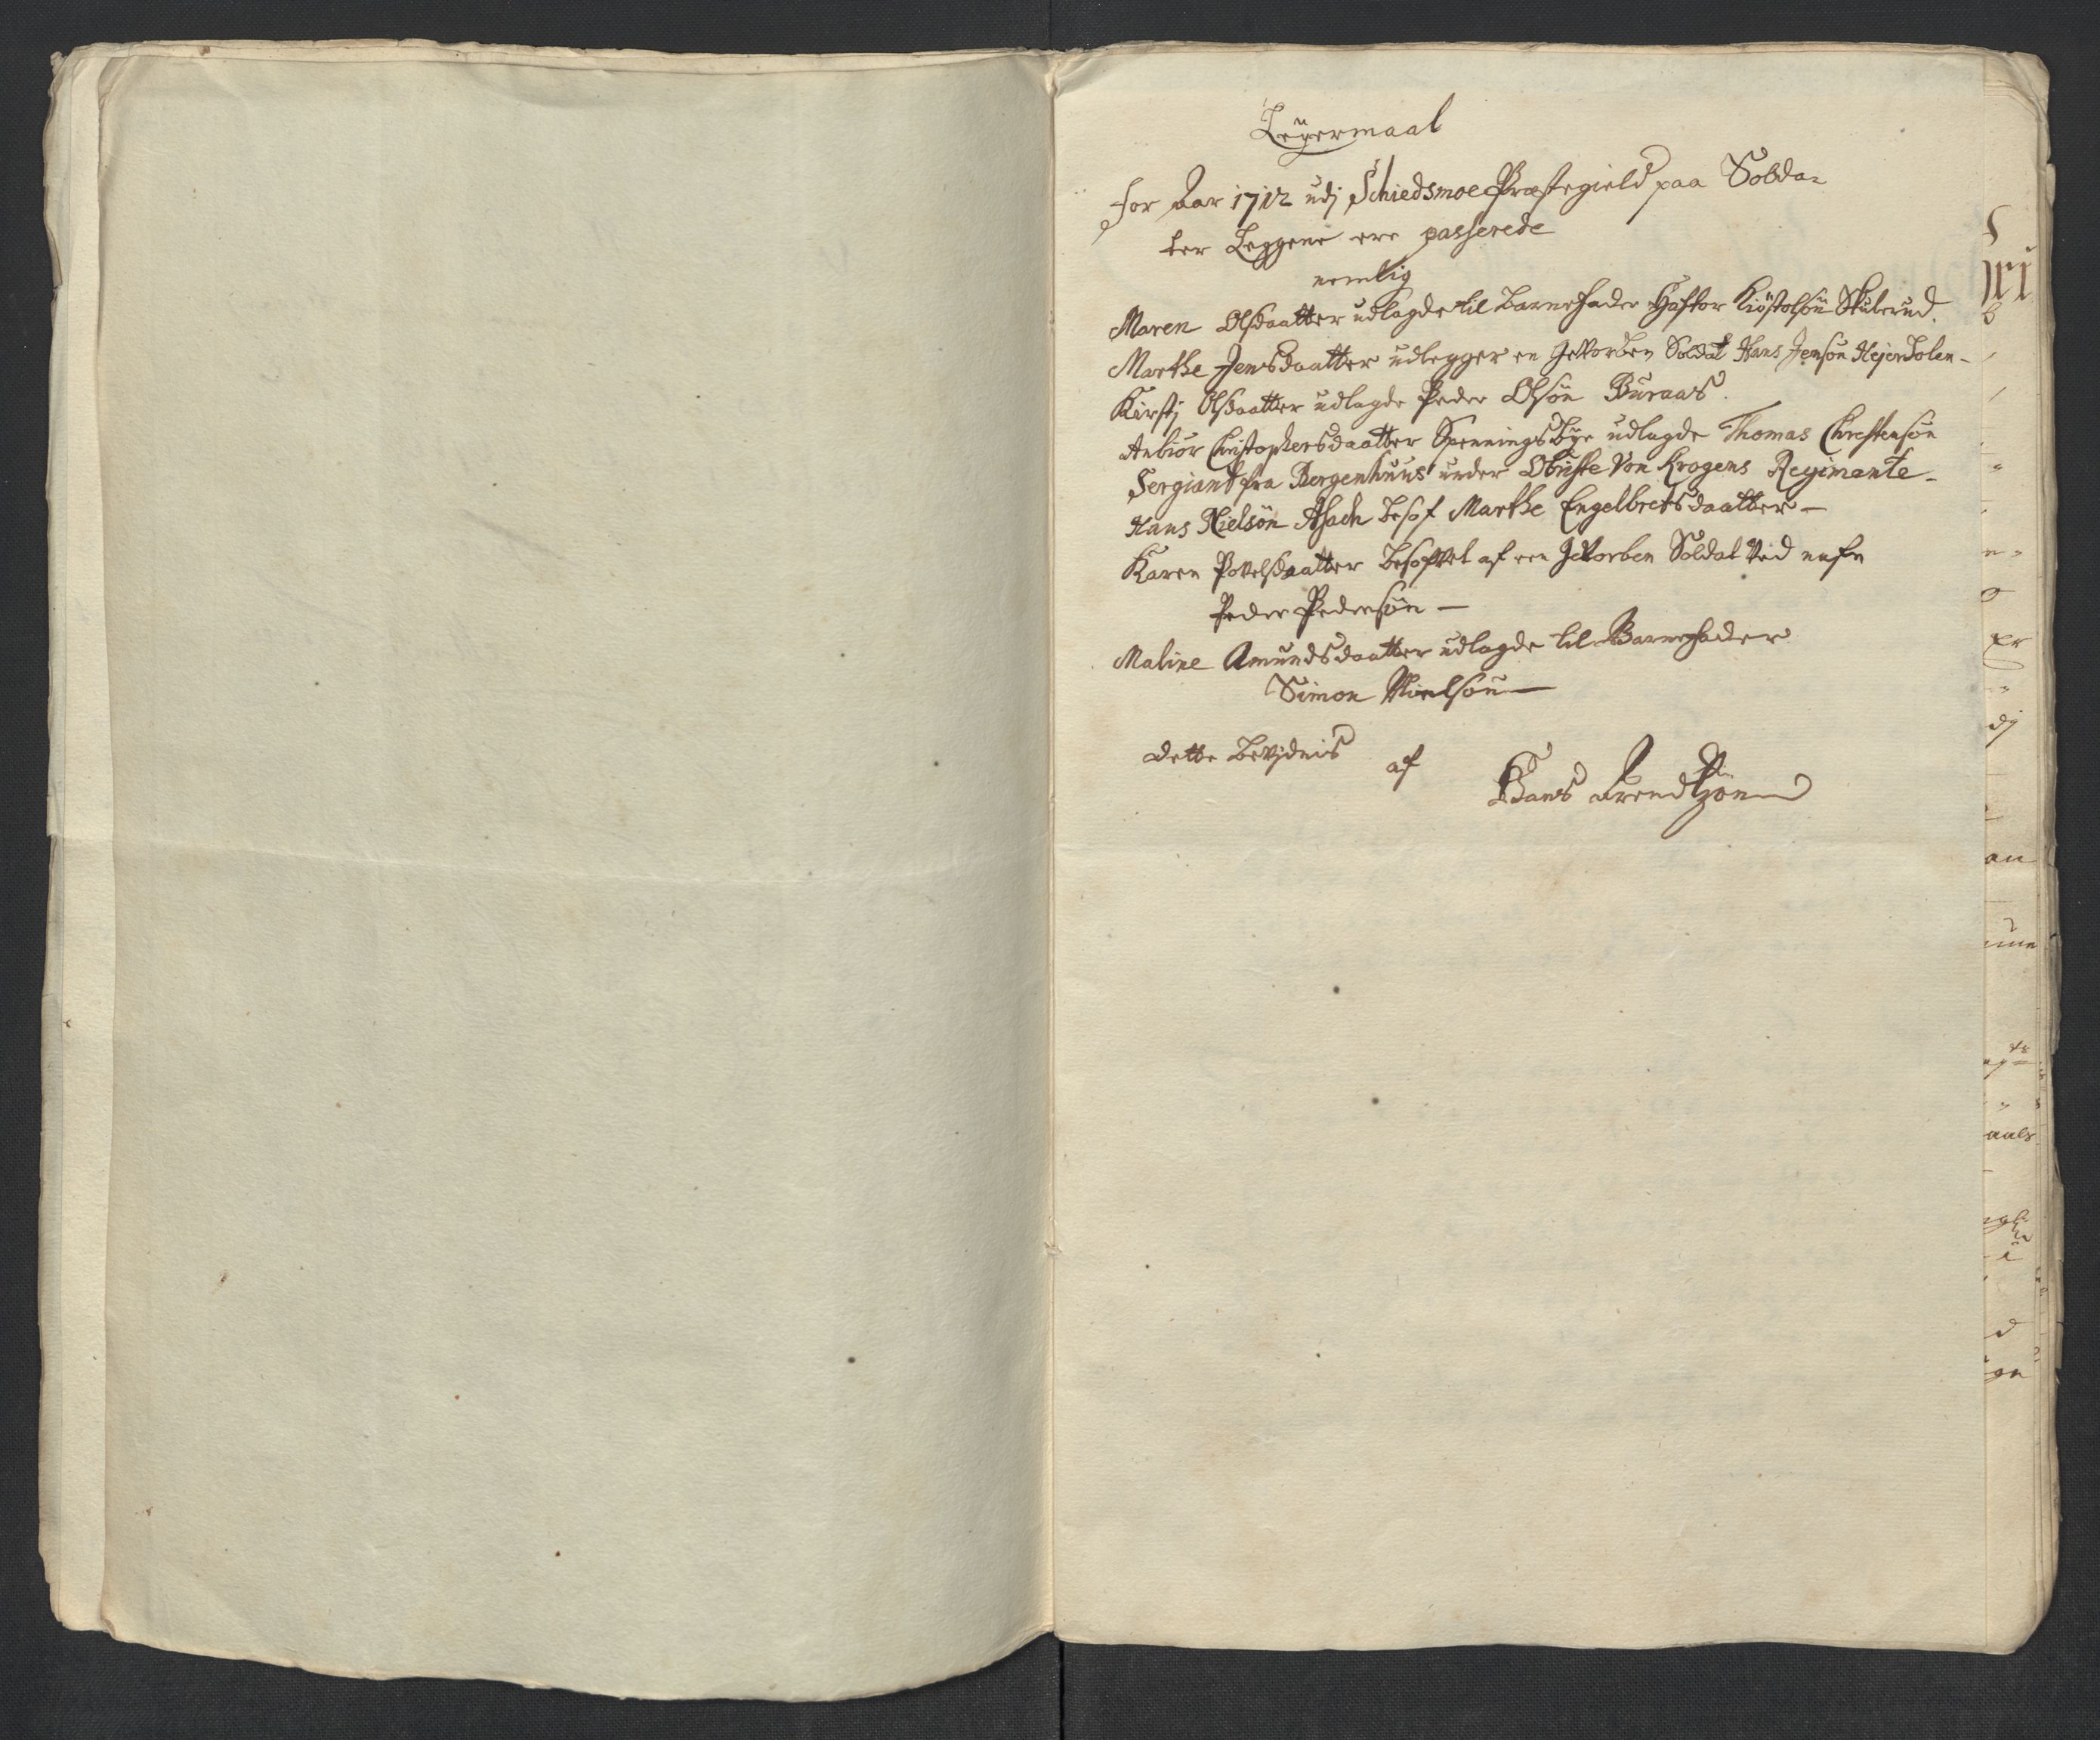 Leÿermaal
for Aar 1712 udj Schiedsmoe Præstegield paa Solda-
ter Leggene ere passerede
nemlig
Maren Olsdaatter udlagde til Barnefader Haftor Kiöstolsön Skulerud.
Marthe Jensdaatter udlegger en Geworben Soldat Hans Jensön Hejerdolen -
Kirstj Olsdaatter udlagde Peder Olsön Buraas.
Anbiör Christophersdaatter Spenningsbye udlagde Thomas Christensön
Sergiant fra Bergenhuus under Obriste Von Krogens Regimente -
Hans Nielsön Asach besof Marthe Engelbretsdaatter -
Karen Povelsdaatter besofvet af een Geworben Soldat ved nafn
Peder Pedersön -
Maline Amundsdaatter udlagde til Barnefader
Simon Nielsön -
dette bevjdnis
af
Hans Arendtzön